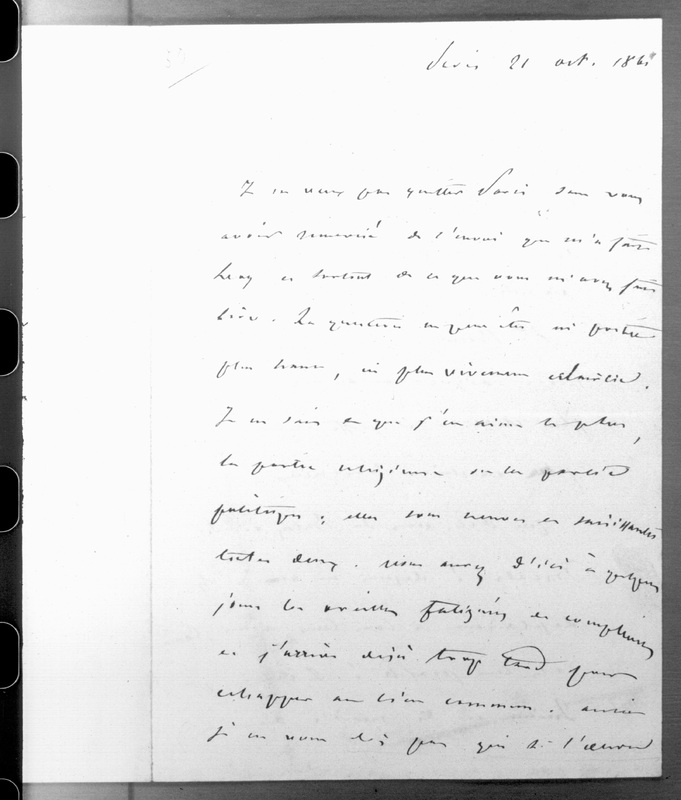 Paris 21 oct. 1861
Je ne veux pas quitter Paris sans vous
avoir remercié de l'envoi que m'a fait
Lévy et surtout de ce que vous m'avez fait
lire. La question ne peut être ni portée
plus haut, ni plus vivement
Je ne sais ce que j'en aime le plus,
la partie religieuse ou la partie
politique ; elles sont neuves et saisissantes
toutes deux. Vous aurez d'ici à quelques
jours les oreilles fatiguées de compliments
et j'arrive déjà trop tard pour
échapper au lieu commun. aussi
je ne vous dis pas que si l'œuvre